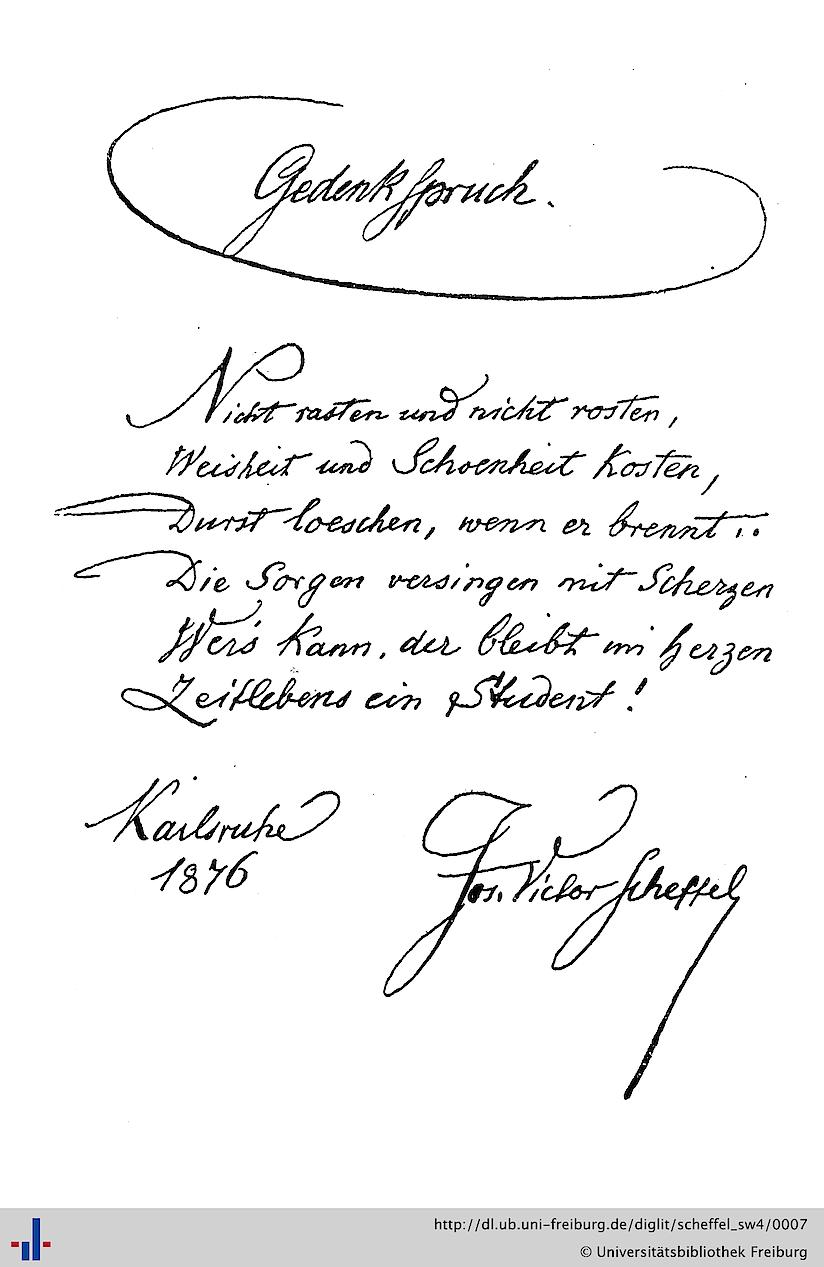 Gedenkspruch.
Nicht rasten und nicht rosten,
Weisheit und Schoenheit kosten,
Durst loeschen, wenn er brennt..
Die Sorgen versingen mit Scherzen
Wer's kann, der bleibt im Herzen
Zeitlebens ein Student!
Karlsruhe
1876
Jos. Victor Scheffel
http://dl.ub.uni-freiburg.de/diglit/scheffel_sw4/0007
© Universitätsbibliothek Freiburg